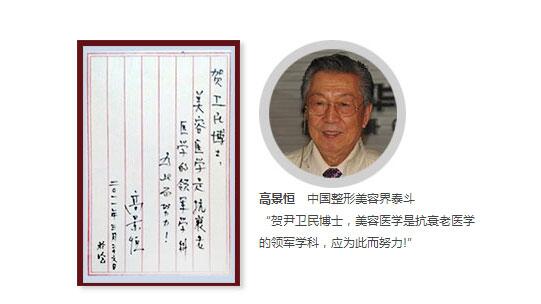 贺卫民博士:
美容医学是抗衰老
医学的领军学科
应为此而努力!
高景恒
高景恒 中国整形美容界泰斗
“贺尹卫民博士，美容医学是抗衰老医学
的领军学科，应为此而努力!”